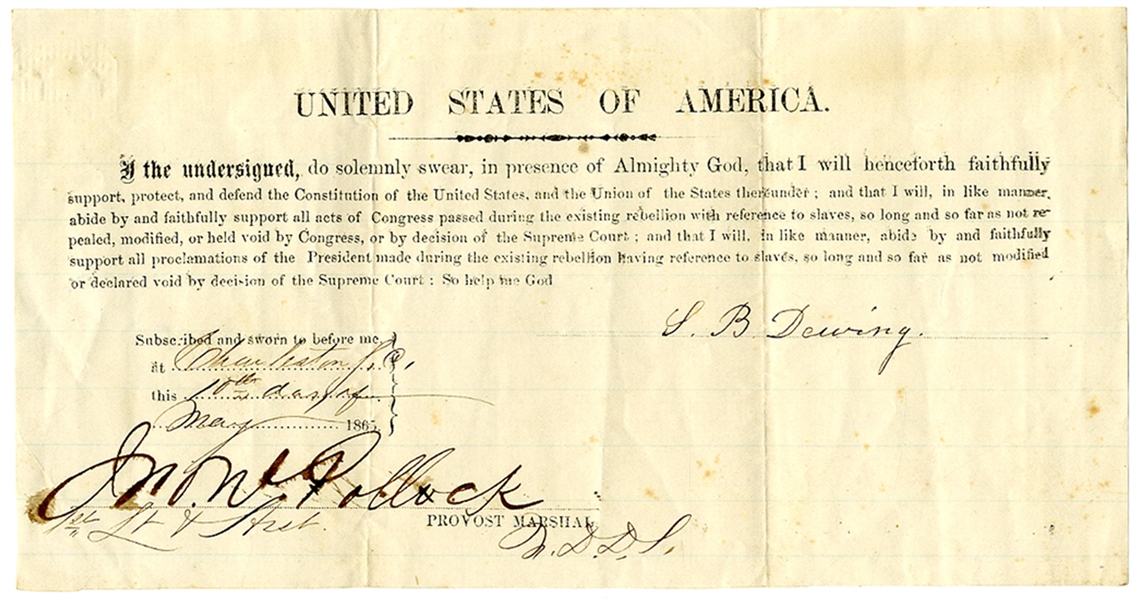 UNITED STATES OF AMERICA.
I the undersigned, do solemnly swear, in presence of Almighty God, that I will henceforth faithfully
support, protect, and defend the Constitution of the United States, and the Union of the States thereunder ; and that I will, in like manner,
abide by and faithfully support all acts of Congress passed during the existing rebellion with reference to slaves, so long and so far as not re-
pealed, modified, or held void by Congress, or by decision of the Supreme Court ; and that I will, in like manner, abide by and faithfully
support all proclamations of the President made during the existing rebellion having reference to slaves, so long and so far as not modified
or declared void by decision of the Supreme Court : So help me God
S. B Dewing.
Subscribed and sworn to before me
at Charleston S. C.
this 10th day of
May 1865
Jno. Pollock
1st Lt & Asst.
PROVOST MARSHAL
D. S.